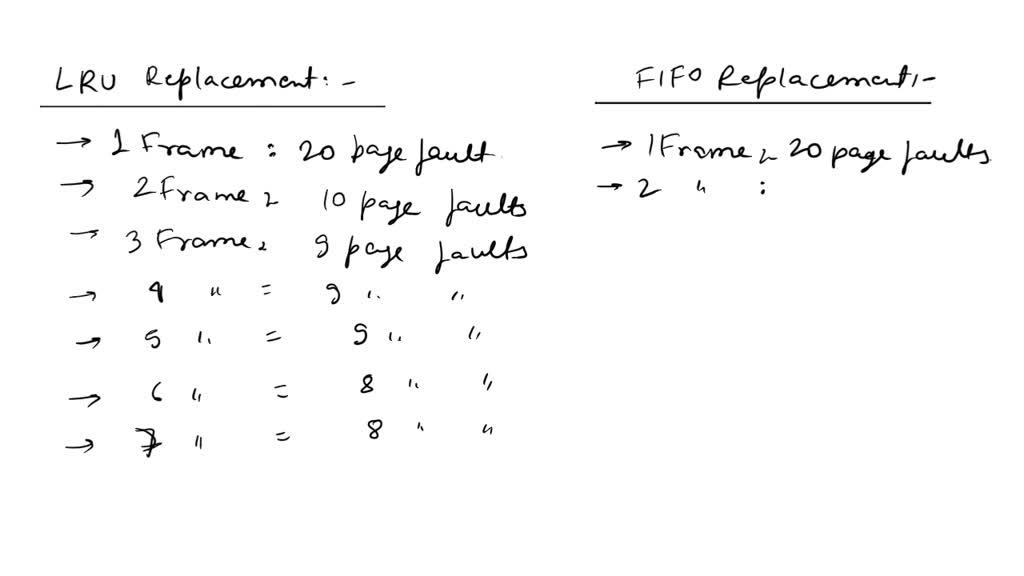 LRU Replacement:-
→ 1 Frame : 20 page fault
→ 2 Frame = 10 page faults
→ 3 Frame = 9 page faults
→ 4 " = 9 " "
→ 5 " = 9 " "
→ 6 " = 8 " "
→ 7 " = 8 " "
FIFO Replacement:-
→ 1 Frame = 20 page faults
→ 2 " :